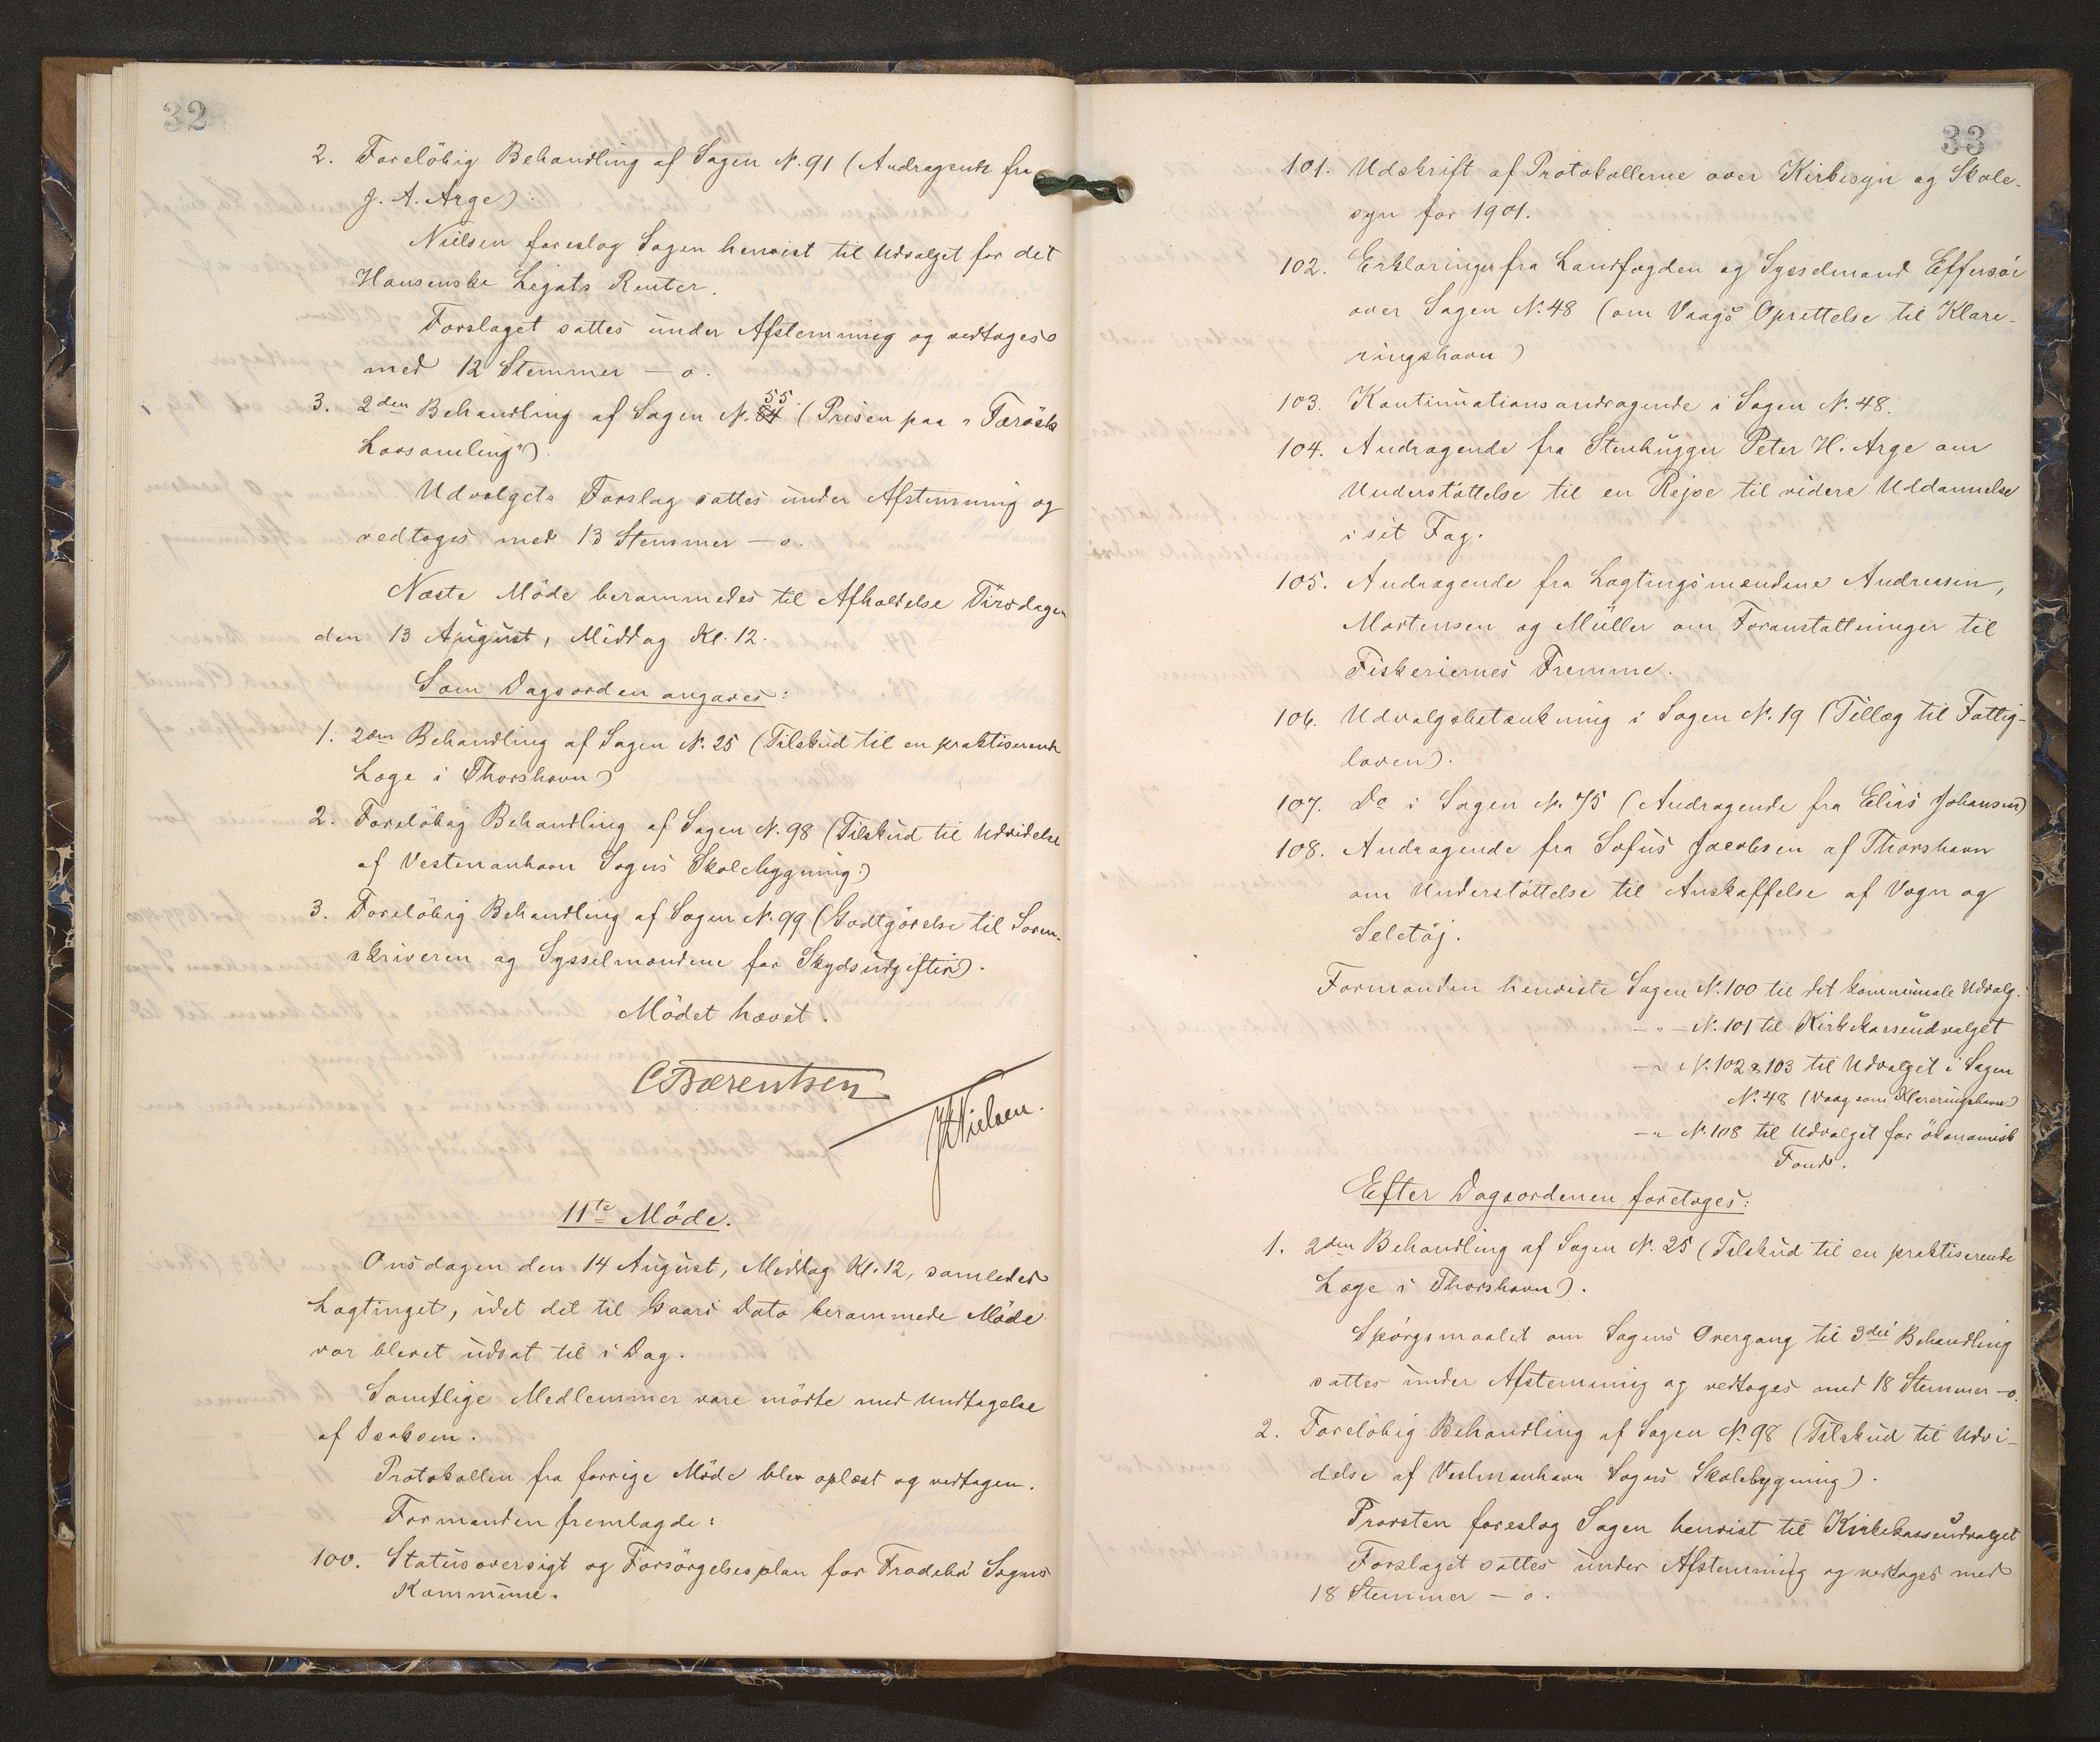 32
2. Foreløbig Behandling af Sagen N. 91 (Andragende fra
J. A. Arge).
Nielsen foreslog Sagen henvist til Udvalget for det
Hansenske Legats Renter.
Forslaget sattes under Afstemning og vedtoges
med 12 Stemmer – o.
3. 2den Behandling af Sagen N. 55 (Prisen paa "Færøsk
Lovsamling").
Udvalgets Forslag sattes under Afstemning og
vedtoges med 13 Stemmer – o.
Næste Möde berammedes til Afholdelse Tirsdagen
den 13 August, Middag Kl. 12.
Som Dagsorden angaves:
1. 2den Behandling af Sagen N. 25 (Tilskud til en praktiserende
Læge i Thorshavn)
2. Foreløbig Behandling af Sagen N. 98 (Tilskud til Udvidelse
af Vestmanhavn Sogns Skolebygning.)
3. Foreløbig Behandling af Sagen N. 99 (Godtgörelse til Soren-
skriveren og Sysselmændene for Skydsudgifter).
Mödet hævet.
C Bærentsen
Nielsen.
11te Möde.
Onsdagen den 14 August, Middag Kl. 12, samledes
Lagtinget, idet det til Gaars Dato berammede Möde
var blevet udsat til i Dag.
Samtlige Medlemmer vare mödte med Undtagelse
af Isaksen.
Protokollen fra forrige Möde blev oplæst og vedtagen.
Formanden fremlagde:
100. Statusoversigt og Forsörgelsesplan for Frodebö Sogns
Kommune.
33
101. Udskrift af Protokollerne over Kirkesyn og Skole-
syn for 1901.
102. Erklæringer fra Landfogden og Sysselmand Effersöe
over Sagen N. 48 (om Vaags Oprettelse til Klare-
ringshavn)
103. Kontinuationsandragende i Sagen N. 48.
104. Andragende fra Stenhugger Peter H. Arge om
Understöttelse til en Rejse til videre Uddannelse
i sit Fag.
105. Andragende fra Lagtingsmændene Andreasen,
Mortensen og Müller om Foranstaltninger til
Fiskeriernes Fremme.
106. Udvalgsbetænkning i Sagen N. 19 (Tillæg til Fattig-
loven).
107. Do i Sagen N. 75 (Andragende fra Elias Johansen)
108. Andragende fra Sofus Jacobsen af Thorshavn
om Understöttelse til Anskaffelse af Vogn og
Seletöj.
Formanden henviste Sagen N. 100 til det kommunale Udvalg.
– " – N. 101 til Kirkekasseudvalget
– " N. 102 & 103 til Udvalget i Sagen
N. 48 (Vaag som Klareringshavn)
– " N. 108 til Udvalget for ökonomisk
Fond.
Efter Dagsordenen foretoges:
1. 2den Behandling af Sagen N. 25 (Tilskud til en praktiserende
Læge i Thorshavn).
Spörgsmaalet om Sagens Overgang til 3die Behandling
sattes under Afstemning og vedtoges med 18 Stemmer – o.
2. Foreløbig Behandling af Sagen N. 98 (Tilskud til Udvi-
delse af Vestmanhavn Sogns Skolebygning).
Provsten foreslog Sagen henvist til Kirkekasseudvalget
Forslaget sattes under Afstemning og vedtoges med
18 Stemmer – o.